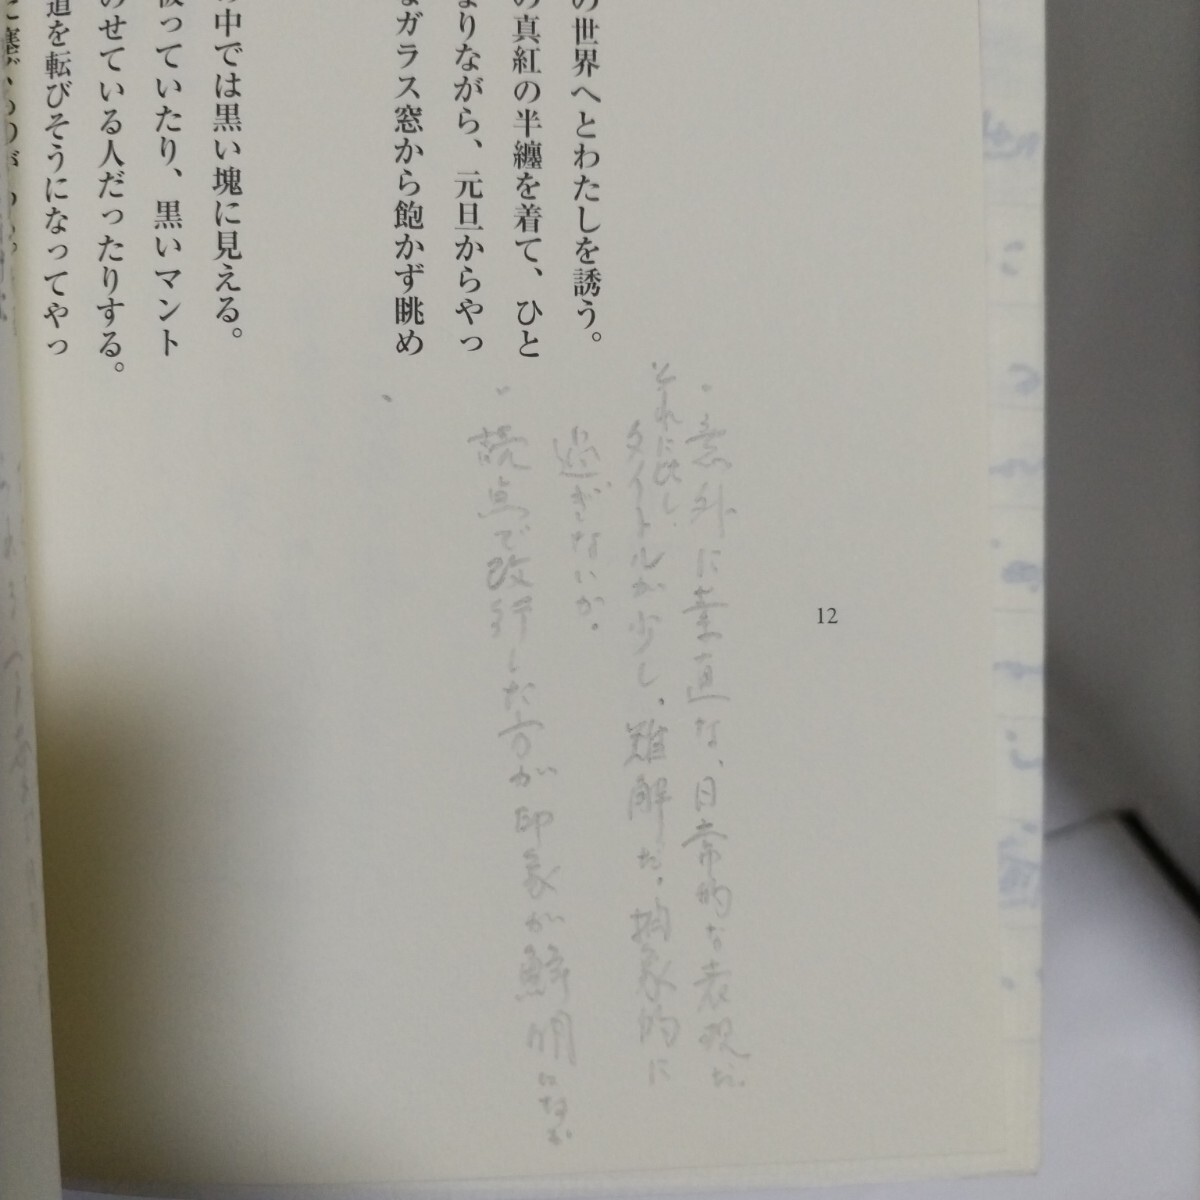 の世界へとわたしを誘う。
の真紅の半纏を着て、ひと
まりながら、元旦からやっ
なガラス窓から飽かず眺め
の中では黒い塊に見える。
被っていたり、黒いマント
のせている人だったりする。
道を転びそうになってやっ
12
・意外に素直な、日常的な表現だ。
それに比し、
タイトルが少し、難解だ。抽象的に
過ぎないか。
・読点で改行した方が印象が鮮明に